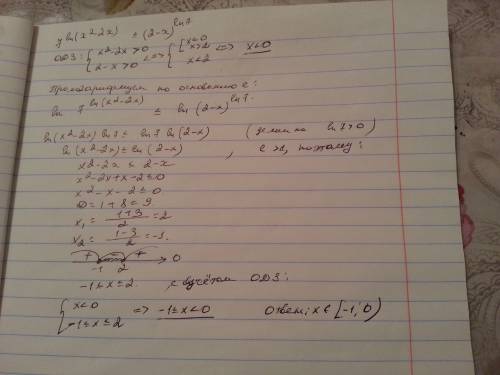 7^ln(x²-2x) ≤ (2-x)^ln7
ОДЗ: { x²-2x>0 2-x>0 <=> { [ x<0 x>2 x<2 <=> x<0
Прологарифмируем по основанию e:
ln 7^ln(x²-2x) ≤ ln (2-x)^ln7.
ln(x²-2x) ln7 ≤ ln7 ln(2-x) (делим на ln7>0)
ln(x²-2x) ≤ ln(2-x) , e>1, поэтому:
x²-2x ≤ 2-x
x²-2x+x-2≤0
x²-x-2≤0
D=1+8=9
x₁ = (1+3)/2 = 2
x₂ = (1-3)/2 = -1.
+ - +
-1 2
-1≤x≤2. с учётом ОДЗ:
{ x<0 -1≤x≤2 => -1≤x<0 Ответ: x ∈ [-1; 0)